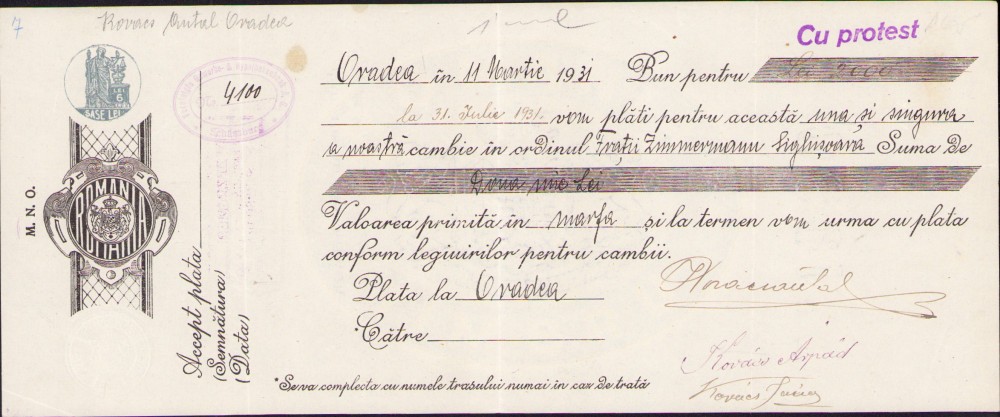 7
Kovacs Antal Oradea
Cu protest
LEI 6
SASE LEI
4100
M. N. O.
ROMANIA
Accept plata
(Semnătura)
(Data)
Oradea în 11 Martie 1931 Bun pentru Lei
la 31. Iulie 1931. vom plăti pentru această una și singura
a noastră cambie în ordinul Frații Zimmermann Sighișoara Suma de
Doua mie Lei
Valoarea primită în marfa și la termen vom urma cu plata
conform legiuirilor pentru cambii.
Plata la Oradea
Către
Kovács Antal
Kovács Arpád
Kovács
*Se va complecta cu numele trasului numai în caz de trată